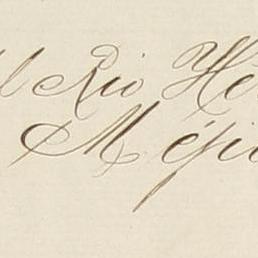 l Rio He
Méji